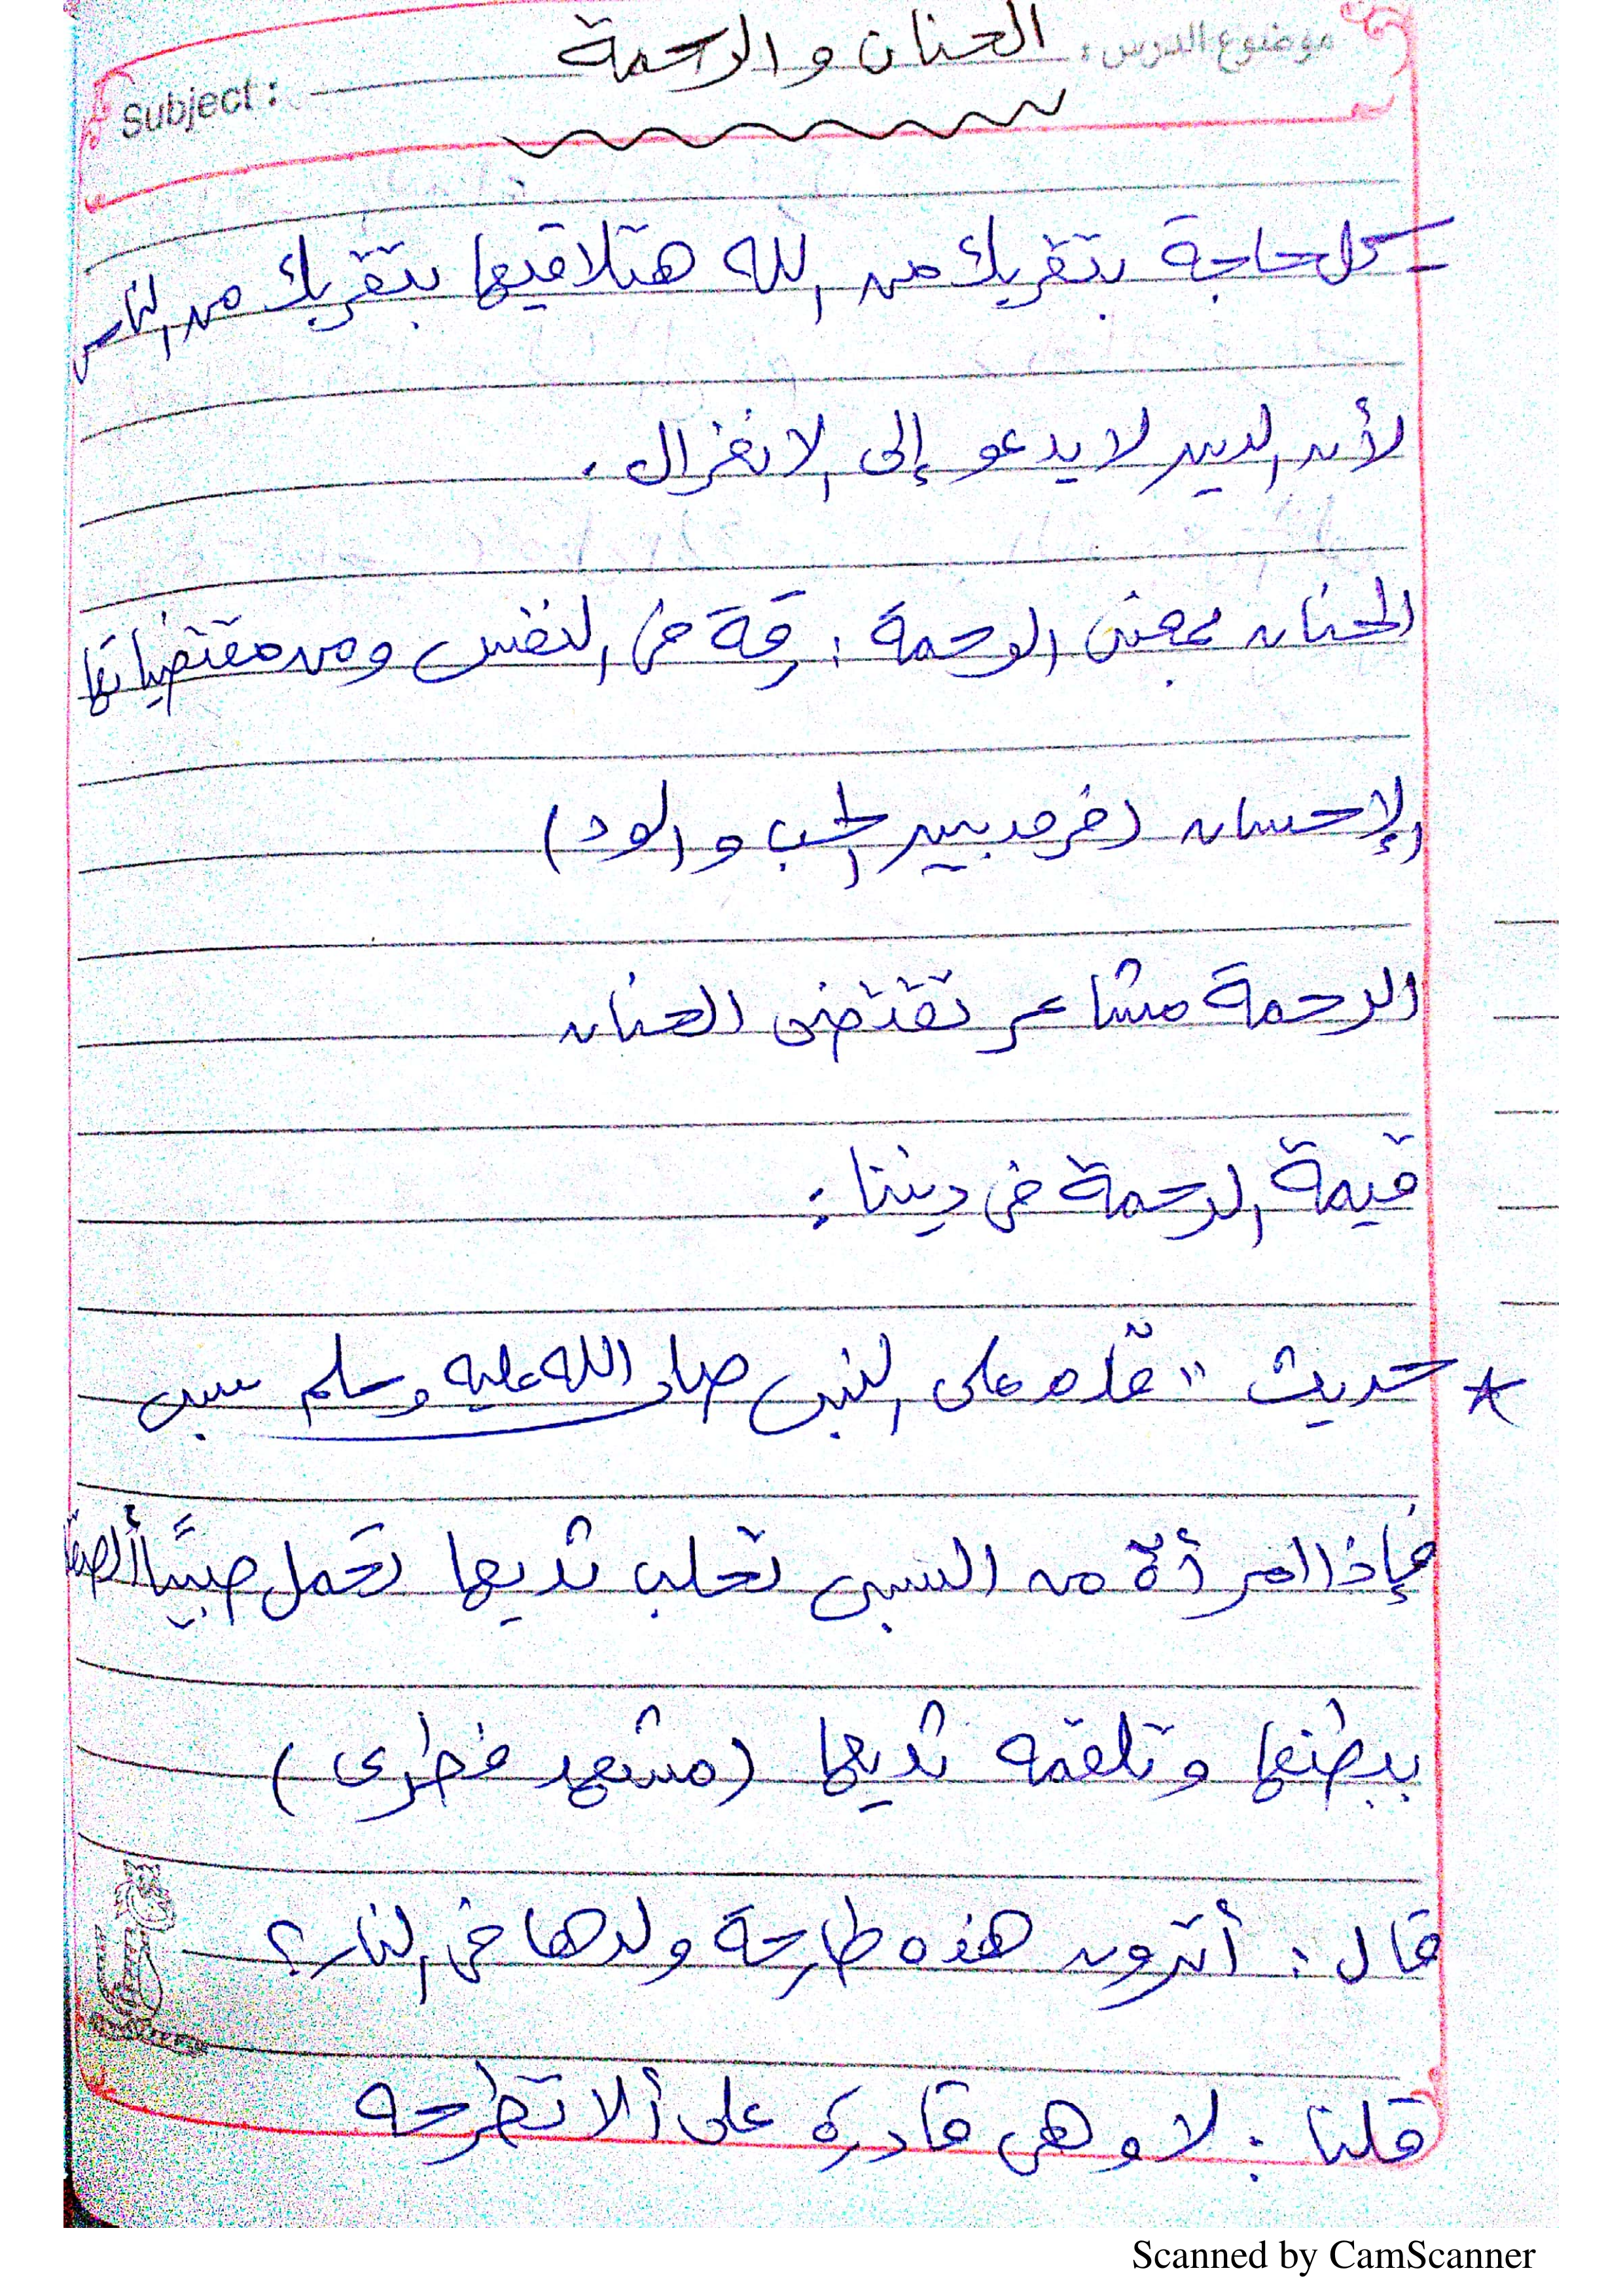 موضوع الدرس: الحنان والرحمة Subject:
- كل حاجة بتقربك من الله هتلاقيها بتقربك من الناس
لأن الدين لا يدعو إلى الانعزال.
الحنان بمعنى الرحمة: رقة فى النفس ومن مقتضياتها
الإحسان (فرق بين الحب والود)
الرحمة مشاعر تقتضى الحنان
قيمة الرحمة فى ديننا:
* حديث " قدم على النبى صلى الله عليه وسلم سبى
فإذا امرأة من السبى تحلب ثديها تحمل صبيًا ألصقته
ببطنها وتلقمه ثديها (مشهد فطرى)
قال: أترون هذه طارحة ولدها فى النار؟
قلنا: لا وهى قادرة على ألا تطرحه
Scanned by CamScanner